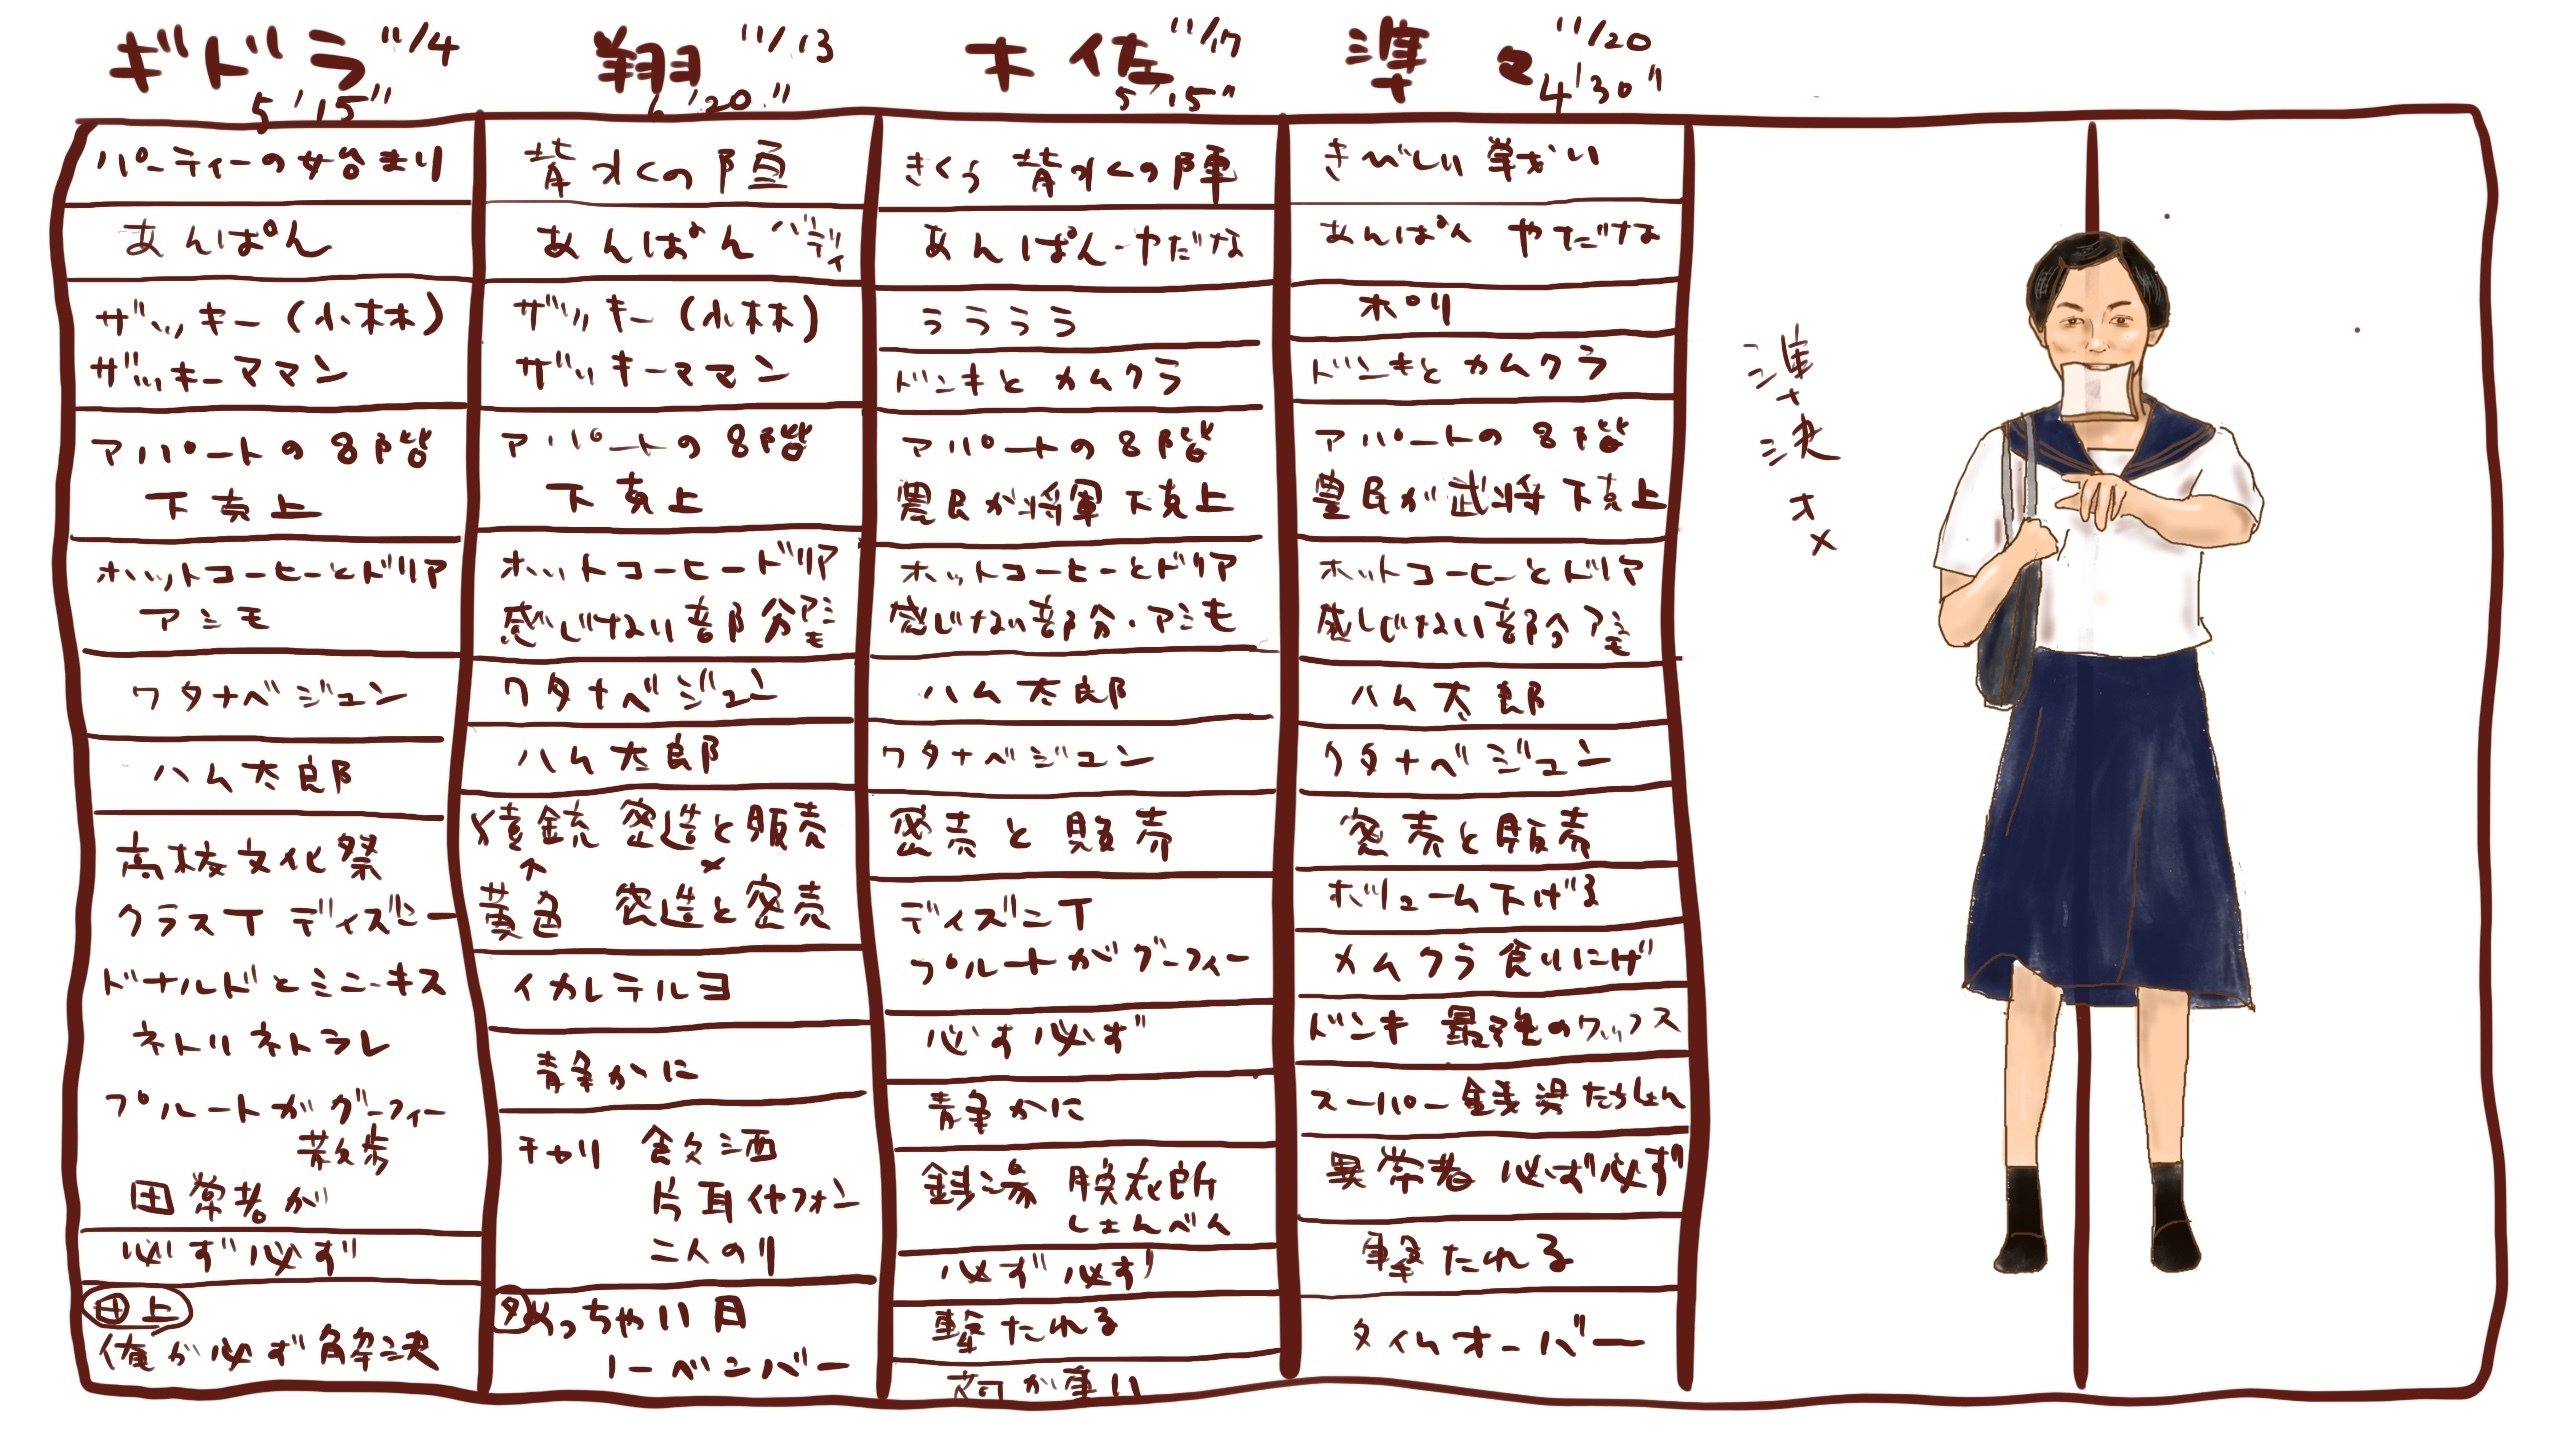 ギドラ 11/4
5'15"
パーティーの始まり
あんぱん
ザッキー(小林)
ザッキーママン
アパートの8階
下克上
ホットコーヒーとドリア
アシモ
ワタナベジュン
ハム太郎
高校文化祭
クラスT ディズニー
ドナルドとミニーキス
ネトリネトラレ
プルートがグーフィー
散歩
常者が
必ず必ず
上
俺が必ず解決
翔 11/13
6'20"
背水の陣
あんぱん バーディ
ザッキー(小林)
ザッキーママン
アパートの8階
下克上
ホットコーヒードリア
感じない部分アシモ
ワタナベジュン
ハム太郎
猿銃 密造と販売
黄色 密造と密売
イカレテルヨ
静かに
チャリ 飲酒
片耳イヤフォン
二人のり
めっちゃいい日
ノーベンバー
木佐 11/17
5'15"
きくぅ 背水の陣
あんぱん・やだな
ぅぅぅぅ
ドンキとカムクラ
アパートの8階
農民が将軍 下克上
ホットコーヒーとドリア
感じない部分・アシモ
ハム太郎
ワタナベジュン
密売と販売
ディズニーT
プルートがグーフィー
必ず必ず
静かに
銭湯 脱衣所
しょんべん
必ず必ず
撃たれる
が重い
準々 11/20
4'30"
きびしい戦い
あんぱん やだな
ポリ
ドンキとカムクラ
アパートの8階
農民が武将 下克上
ホットコーヒーとドリア
感じない部分アシモ
ハム太郎
ワタナベジュン
密売と販売
ボリューム下げる
カムクラ食いにげ
ドンキ 最強のワックス
スーパー銭湯たちしょん
異常者 必ず必ず
撃たれる
タイムオーバー
準
決
オ
メ